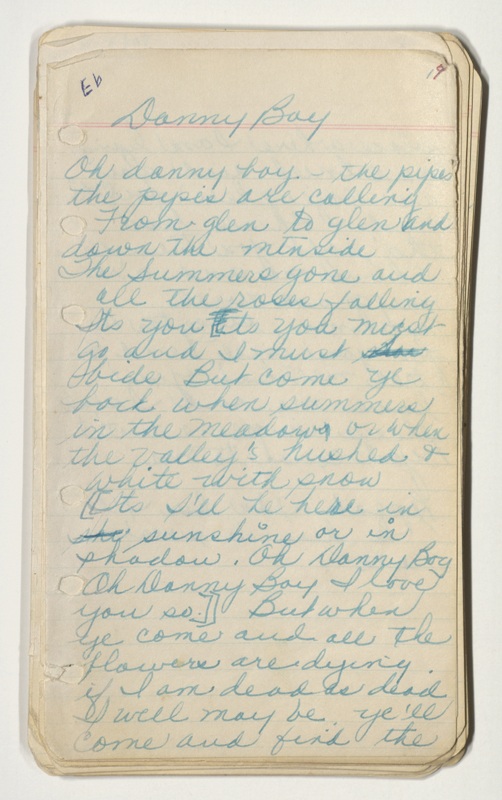 Eb
19
Danny Boy
Oh danny boy - the pipes
the pipes are calling
From glen to glen and
down the mtnside
The Summers gone and
all the roses falling
Its you [Its you must
go and I must
bide But come ye
back when summers
in the meadow, or when
the valley's hushed &
white with snow
[Its I'll be here in
sunshine or in
shadow. Oh Danny Boy
Oh Danny Boy I love
you so.]] But when
ye come and all the
flowers are dying
if I am dead as dead
I well may be ye'll
come and find the